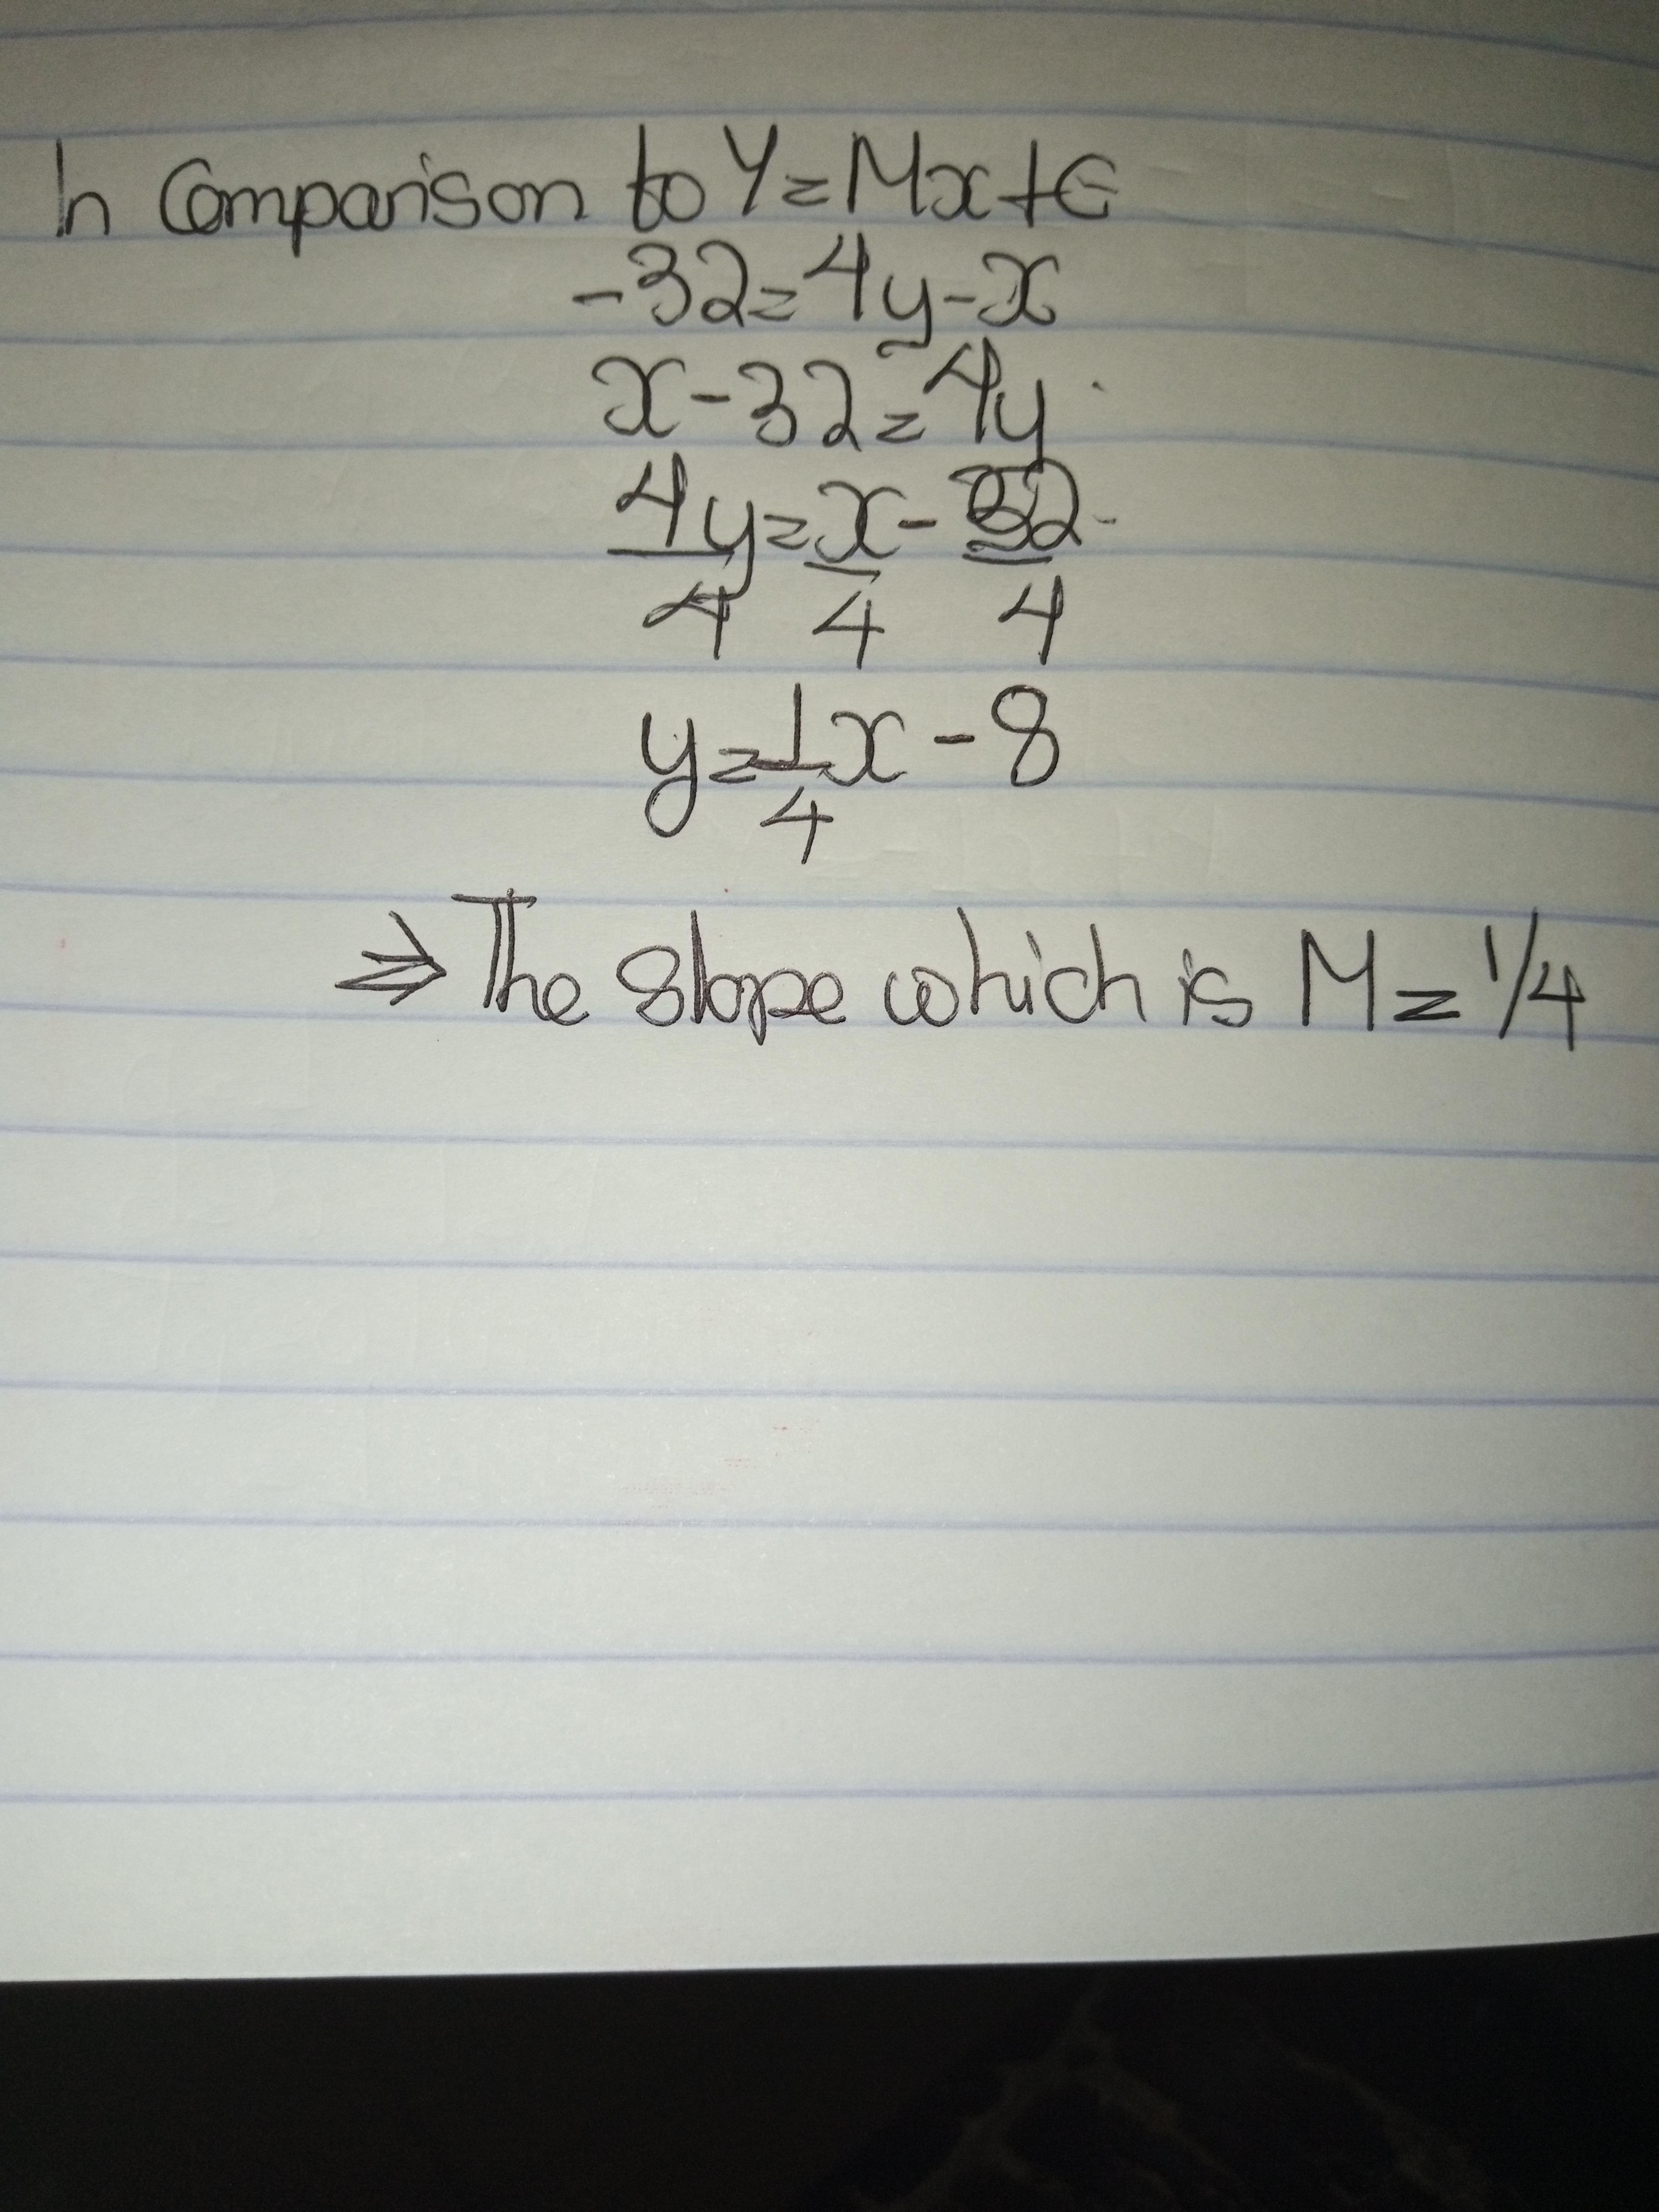 In Comparison to Y=Mx+C
-32=4y-x
x-32=4y
4y=x-32
4 4 4
y=1x-8
4
⇒The slope which is M=1/4